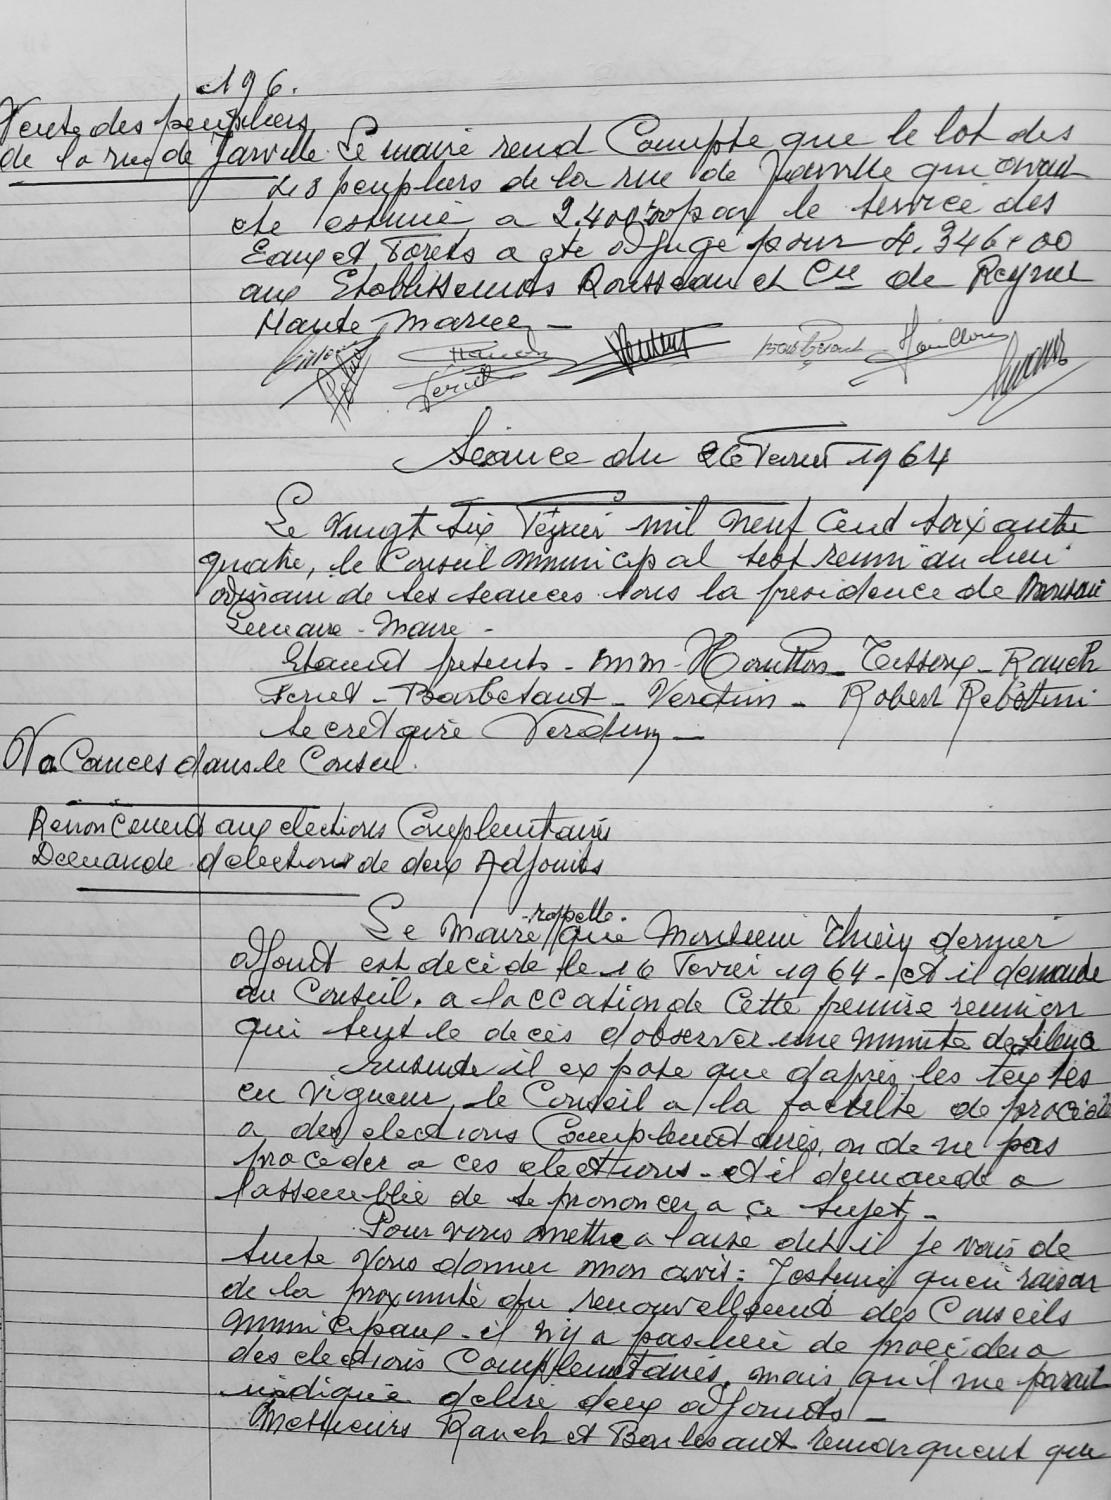 196.
Vente des peupliers
de la rue de Jarville. Le maire rend Compte que le lot des
peupliers de la rue de Jarville qui avait
ete estimé a 2.400 par le service des
Eaux et Forets a ete adjugé pour 4.346,00
aux Etablissements Rousseau et Cie de Reynel
Haute Marne –
Séance du 26 Fevrier 1964
Le Vingt Six Février mil neuf Cent soixante
quatre, le Conseil Municipal s'est reuni au lieu
ordinaire de ses seances sous la presidence de Monsieur
Lemaire - Maire -
Etaient présents - MM - Houillon - Tisseux - Rauch
Feriet - Barbesant - Verdun - Robert Rebottini
Secretaire Verdun –
Vacances dans le Conseil.
Renoncement aux elections Complementaires
Demande d'elections de deux Adjoints
Le Maire rappelle que Monsieur Thiery dernier
adjoint est decedé le 16 Fevrier 1964 - et il demande
au Conseil, a l'occasion de Cette premiere reunion
qui suit le deces d'observer une minute de silence
Ensuite il expose que d'après les textes
en vigueur, le Conseil a la faculté de proceder
a des elections Complementaires, ou de ne pas
proceder a ces elections - et il demande a
l'assemblée de se prononcer a ce sujet. -
Pour vous mettre a l'aise dit il je vais de
suite Vous donner mon avis : J'estime qu'en raison
de la proximité du renouvellement des Conseils
Municipaux - il n'y a pas lieu de proceder a
des elections Complementaires, mais qu'il me parait
indiqué d'elire deux adjoints –
Messieurs Rauch et Barbesant remarquent que